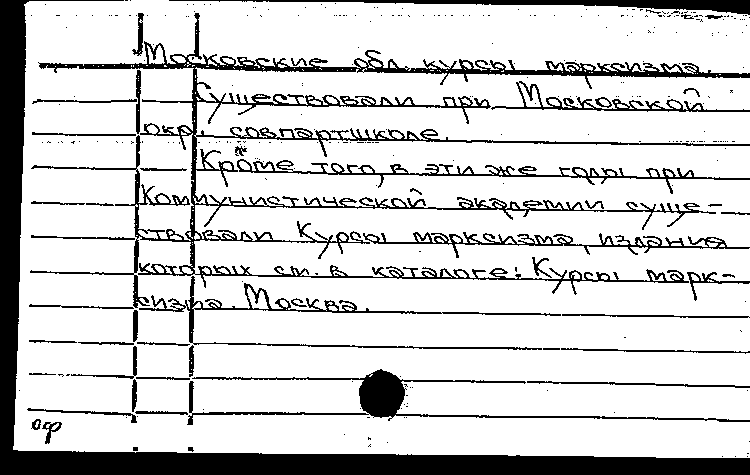 Московские обл. курсы марксизма.
Существовали при Московской
окр. совпартшколе.
Кроме того, в эти же годы при
Коммунистической академии суще-
ствовали Курсы марксизма, издания
которых см. в каталоге: Курсы марк-
сизма. Москва.
оф